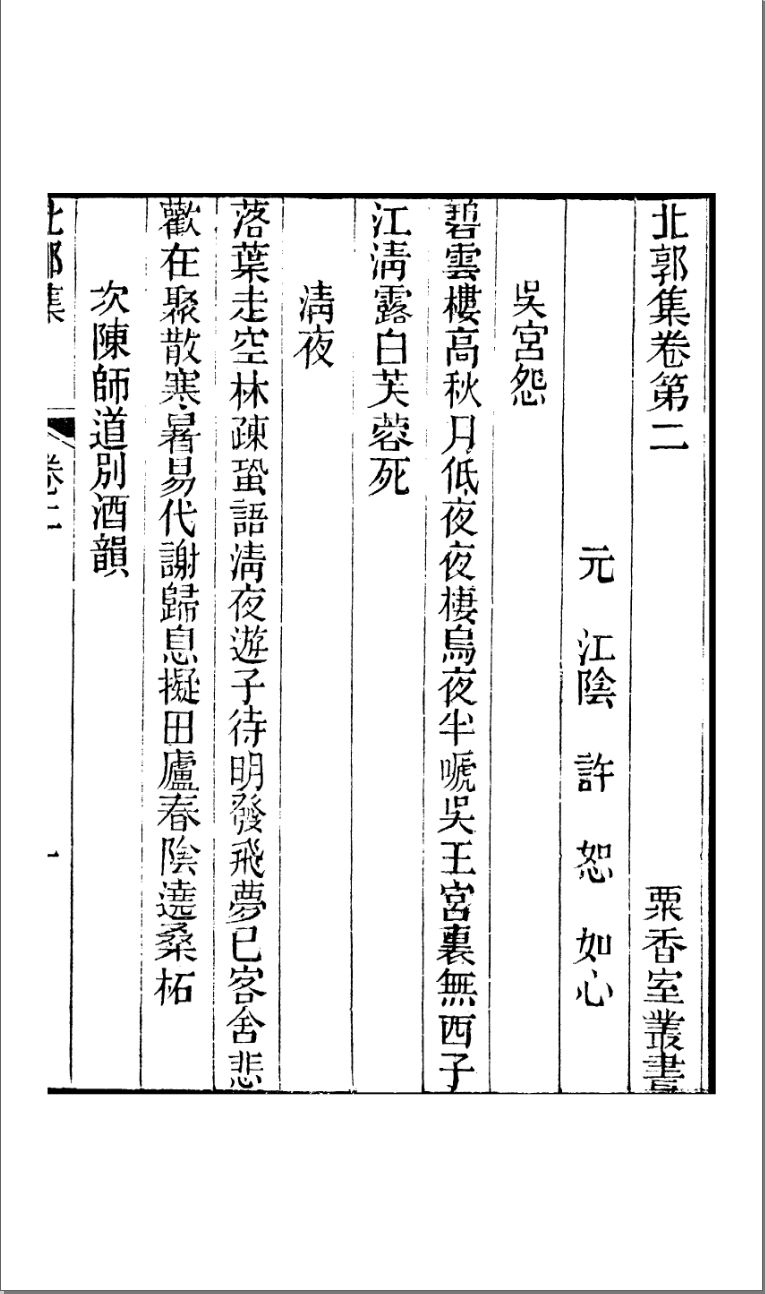 北郭集卷第二　粟香室叢書
元　江陰　許　恕　如心
吳宮怨
碧雲樓高秋月低夜夜棲烏夜半嗁吳王宮裏無西子
江淸露白芙蓉死
淸夜
落葉走空林疎蛩語淸夜遊子待明發飛夢已客舍悲
歡在聚散寒暑易代謝歸息擬田廬春陰遶桑柘
次陳師道別酒韻
北郭集　卷二　一